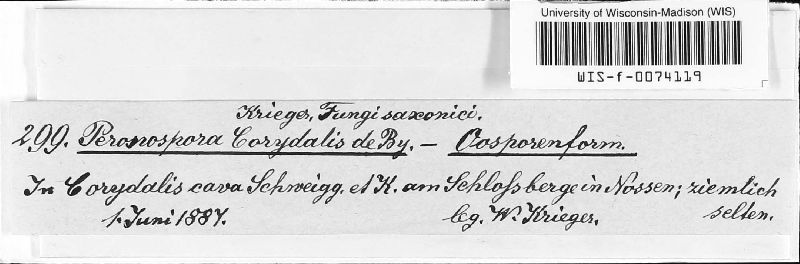 University of Wisconsin-Madison (WIS)
WIS-f-0074119
Krieger, Fungi saxonici.
299. Peronospora Corydalis de By. — Oosporenform.
In Corydalis cava Schweigg. et K. am Schloßberge in Nossen; ziemlich selten.
1. Juni 1887. lg. W. Krieger.